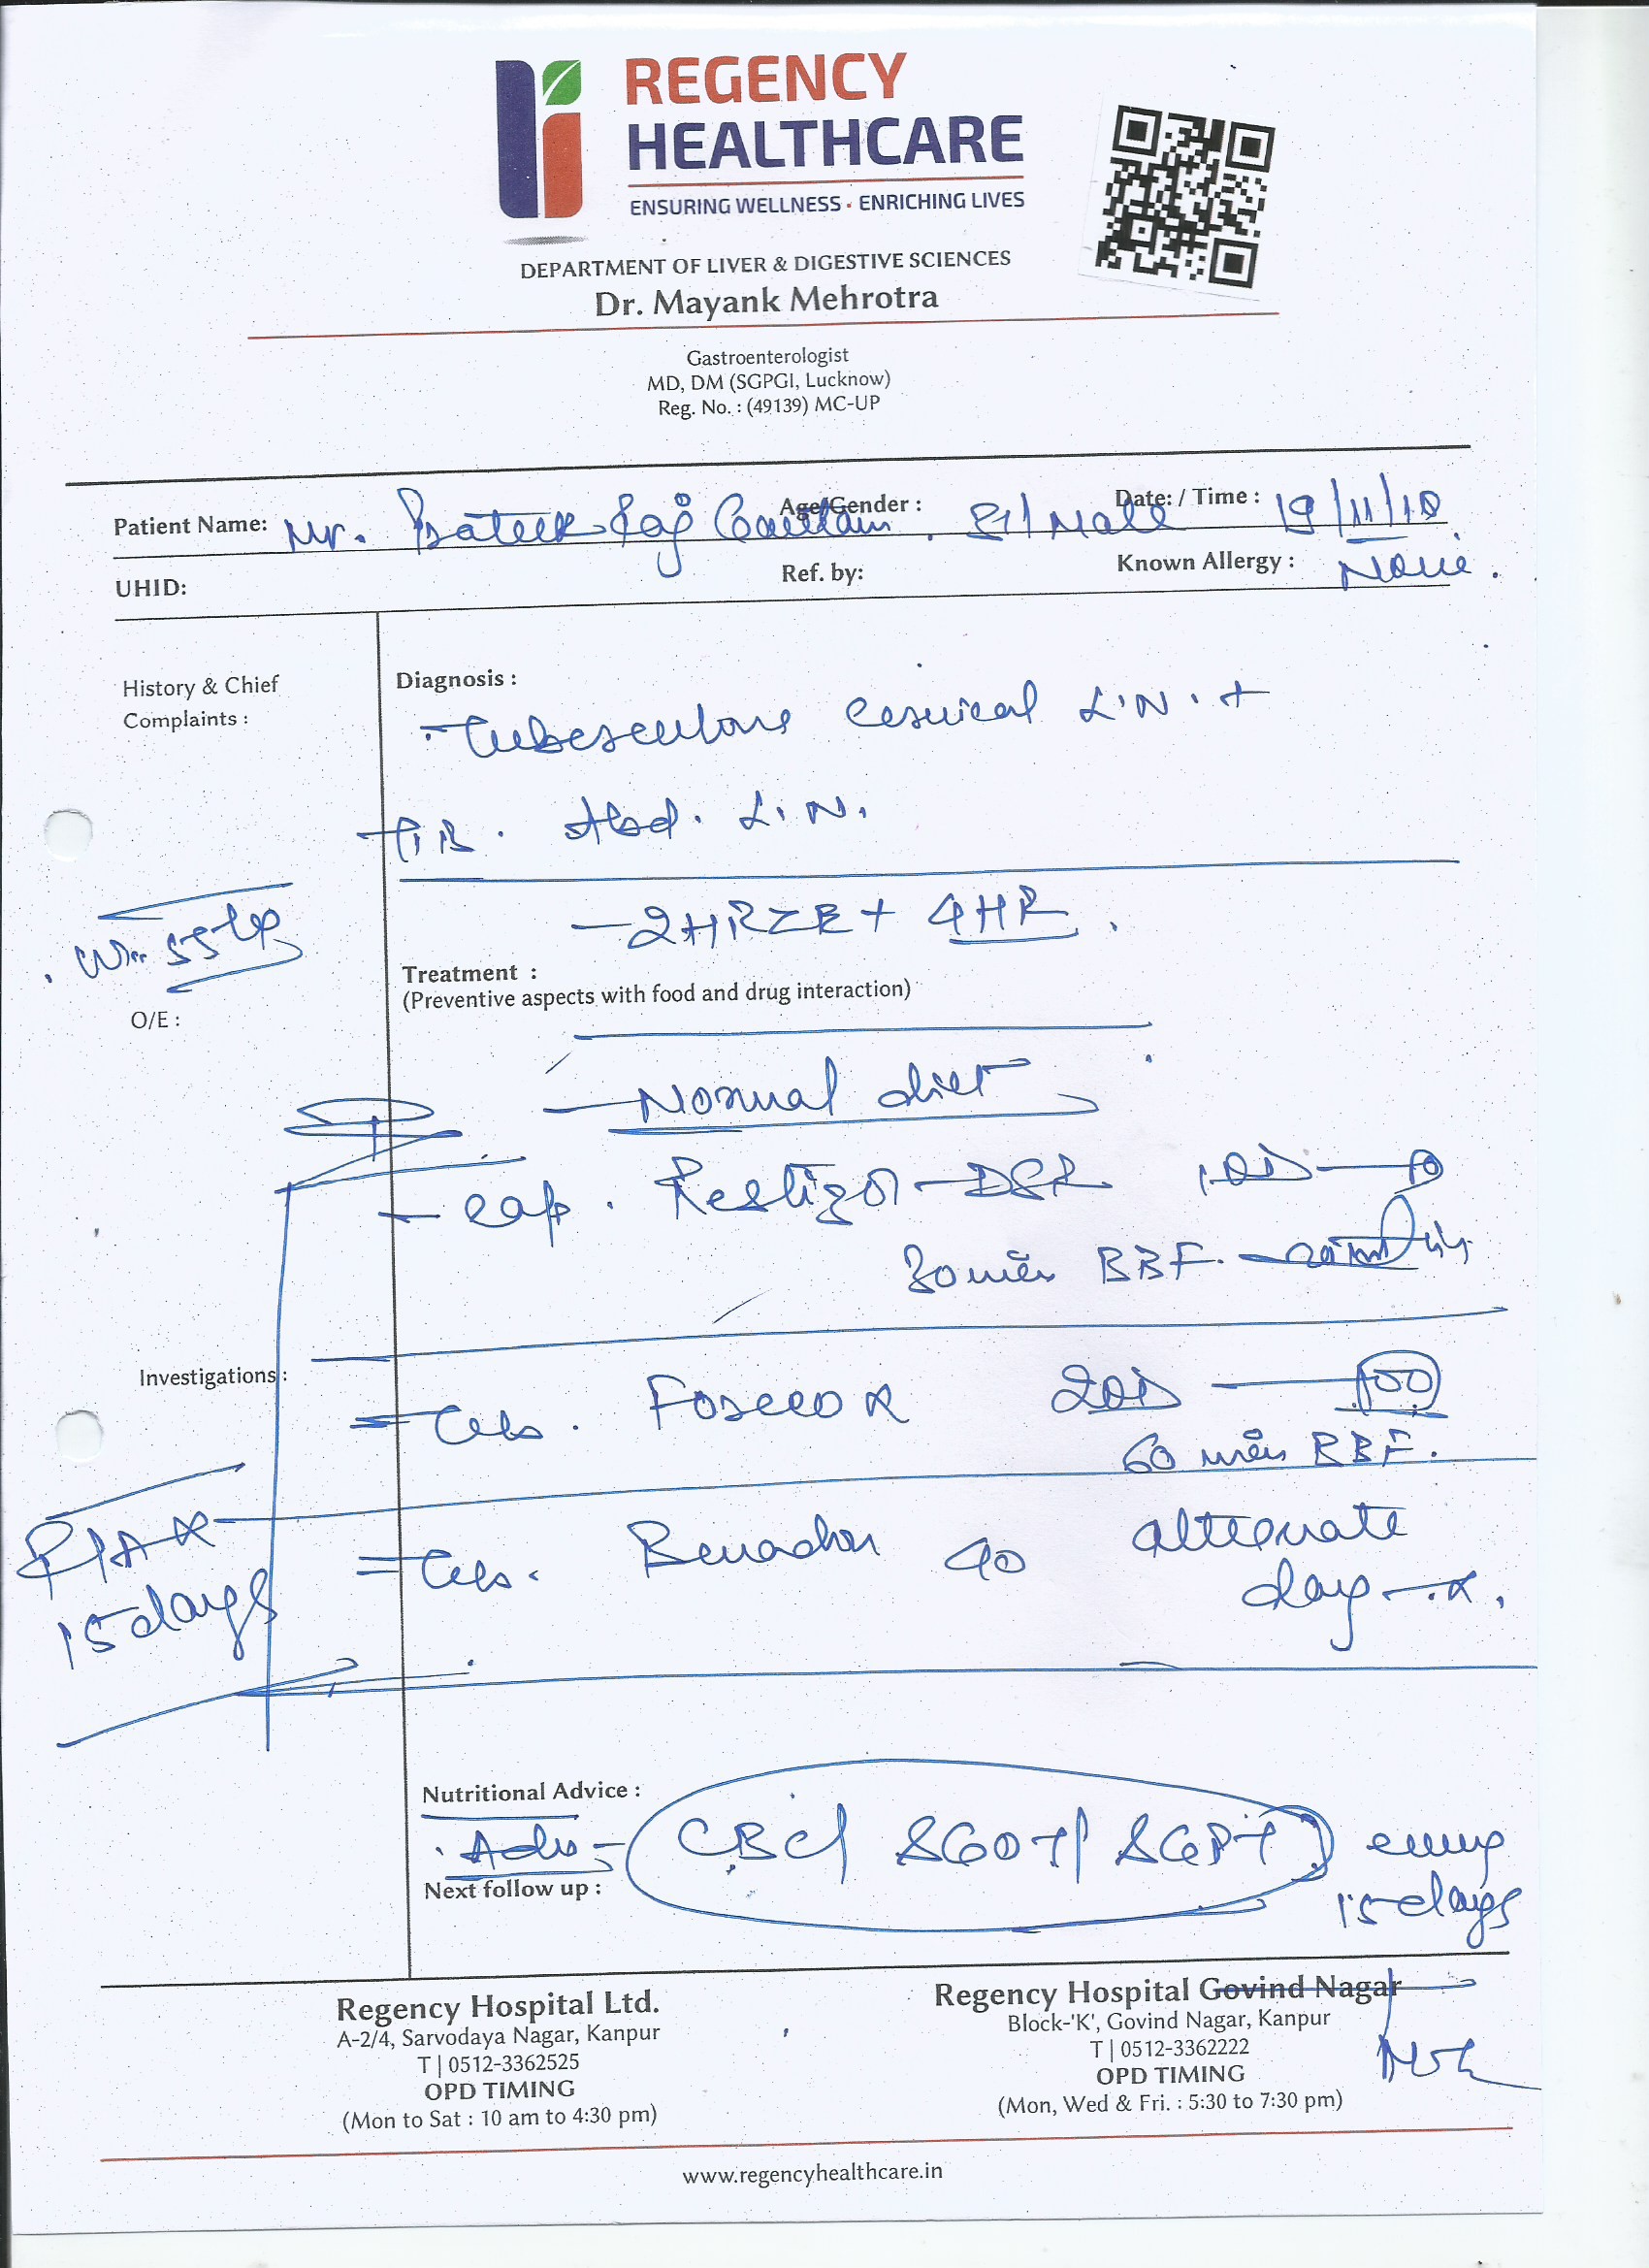 REGENCY
HEALTHCARE
ENSURING WELLNESS · ENRICHING LIVES
DEPARTMENT OF LIVER & DIGESTIVE SCIENCES
Dr. Mayank Mehrotra
Gastroenterologist
MD, DM (SGPGI, Lucknow)
Reg. No. : (49139) MC-UP
Patient Name: Mr. Prateek Raj Gautam Age/Gender : Male Date: / Time :
UHID: Ref. by: Known Allergy : None.
History & Chief
Complaints :
Diagnosis :
- Tuberculous cervical L.N. +
TB. Abd. L.N.
- 2HRZE + 4HR.
Treatment :
(Preventive aspects with food and drug interaction)
O/E :
- Normal diet
- cap. DSR 1OD
30 min BBF.
Investigations :
60 min BBF.
15 days
40 alternate
day
Nutritional Advice :
Adv - CBC/ SGOT/ SGPT every
Next follow up :
15 days
Regency Hospital Ltd.
A-2/4, Sarvodaya Nagar, Kanpur
T | 0512-3362525
OPD TIMING
(Mon to Sat : 10 am to 4:30 pm)
Regency Hospital Govind Nagar
Block-'K', Govind Nagar, Kanpur
T | 0512-3362222
OPD TIMING
(Mon, Wed & Fri. : 5:30 to 7:30 pm)
www.regencyhealthcare.in